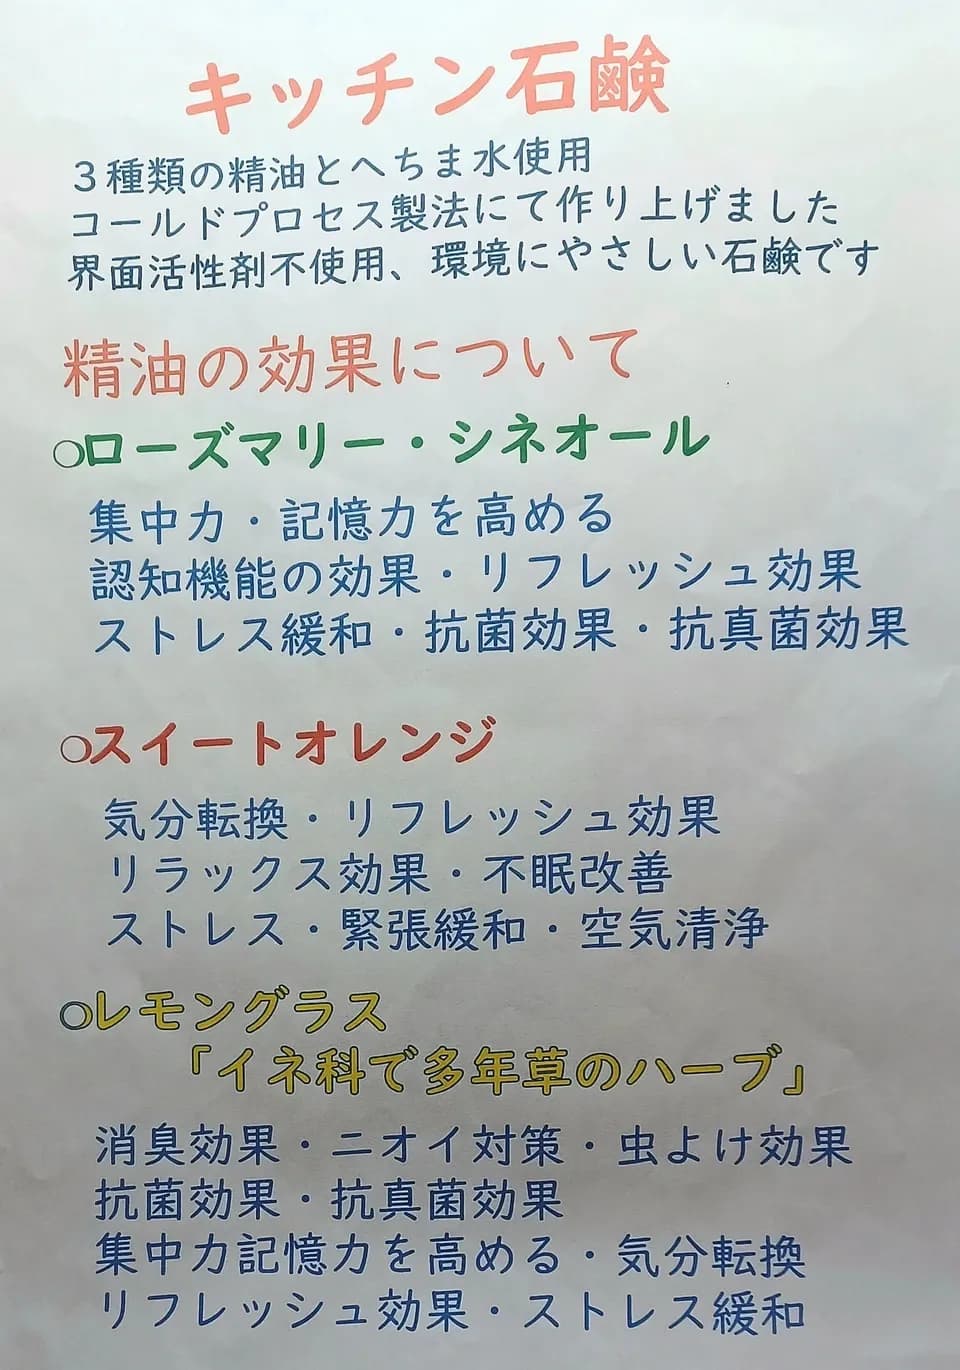 キッチン石鹸
３種類の精油とへちま水使用
コールドプロセス製法にて作り上げました
界面活性剤不使用、環境にやさしい石鹸です
精油の効果について
○ローズマリー・シネオール
集中力・記憶力を高める
認知機能の効果・リフレッシュ効果
ストレス緩和・抗菌効果・抗真菌効果
○スイートオレンジ
気分転換・リフレッシュ効果
リラックス効果・不眠改善
ストレス・緊張緩和・空気清浄
○レモングラス
「イネ科で多年草のハーブ」
消臭効果・ニオイ対策・虫よけ効果
抗菌効果・抗真菌効果
集中力記憶力を高める・気分転換
リフレッシュ効果・ストレス緩和